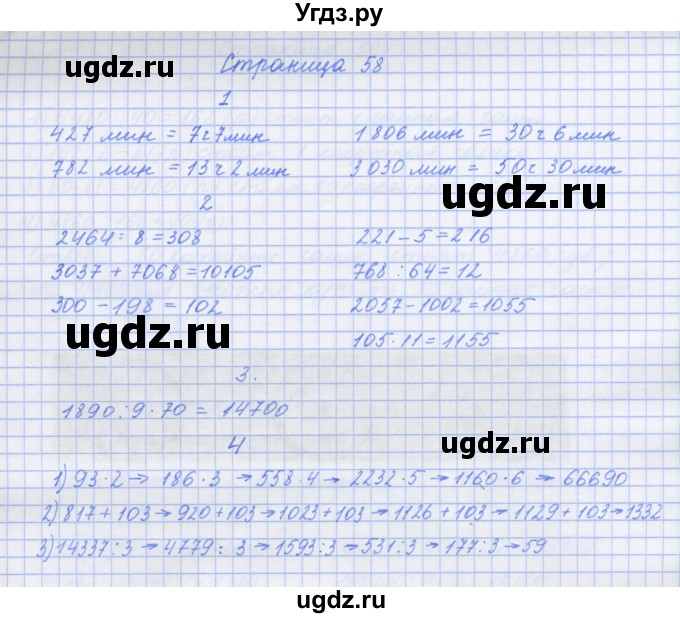 Угдз.ру
Страница 58
1
427 мин = 7ч7мин 1806 мин = 30ч 6мин
782 мин = 13ч 2мин 3030 мин = 50ч 30мин
2
2464 : 8 = 308 221 – 5 = 216
3037 + 7068 = 10105 768 : 64 = 12
300 – 198 = 102 2057 – 1002 = 1055
105 · 11 = 1155
3.
1890 : 9 · 70 = 14700
4
1) 93 · 2 → 186 · 3 → 558 · 4 → 2232 · 5 → 1160 · 6 → 66690
2) 817 + 103 → 920 + 103 → 1023 + 103 → 1126 + 103 → 1129 + 103 → 1332
3) 14337 : 3 → 4779 : 3 → 1593 : 3 → 531 : 3 → 177 : 3 → 59
ugdz.ru
ugdz.ru
ugdz.ru
ugdz.ru
ugdz.ru